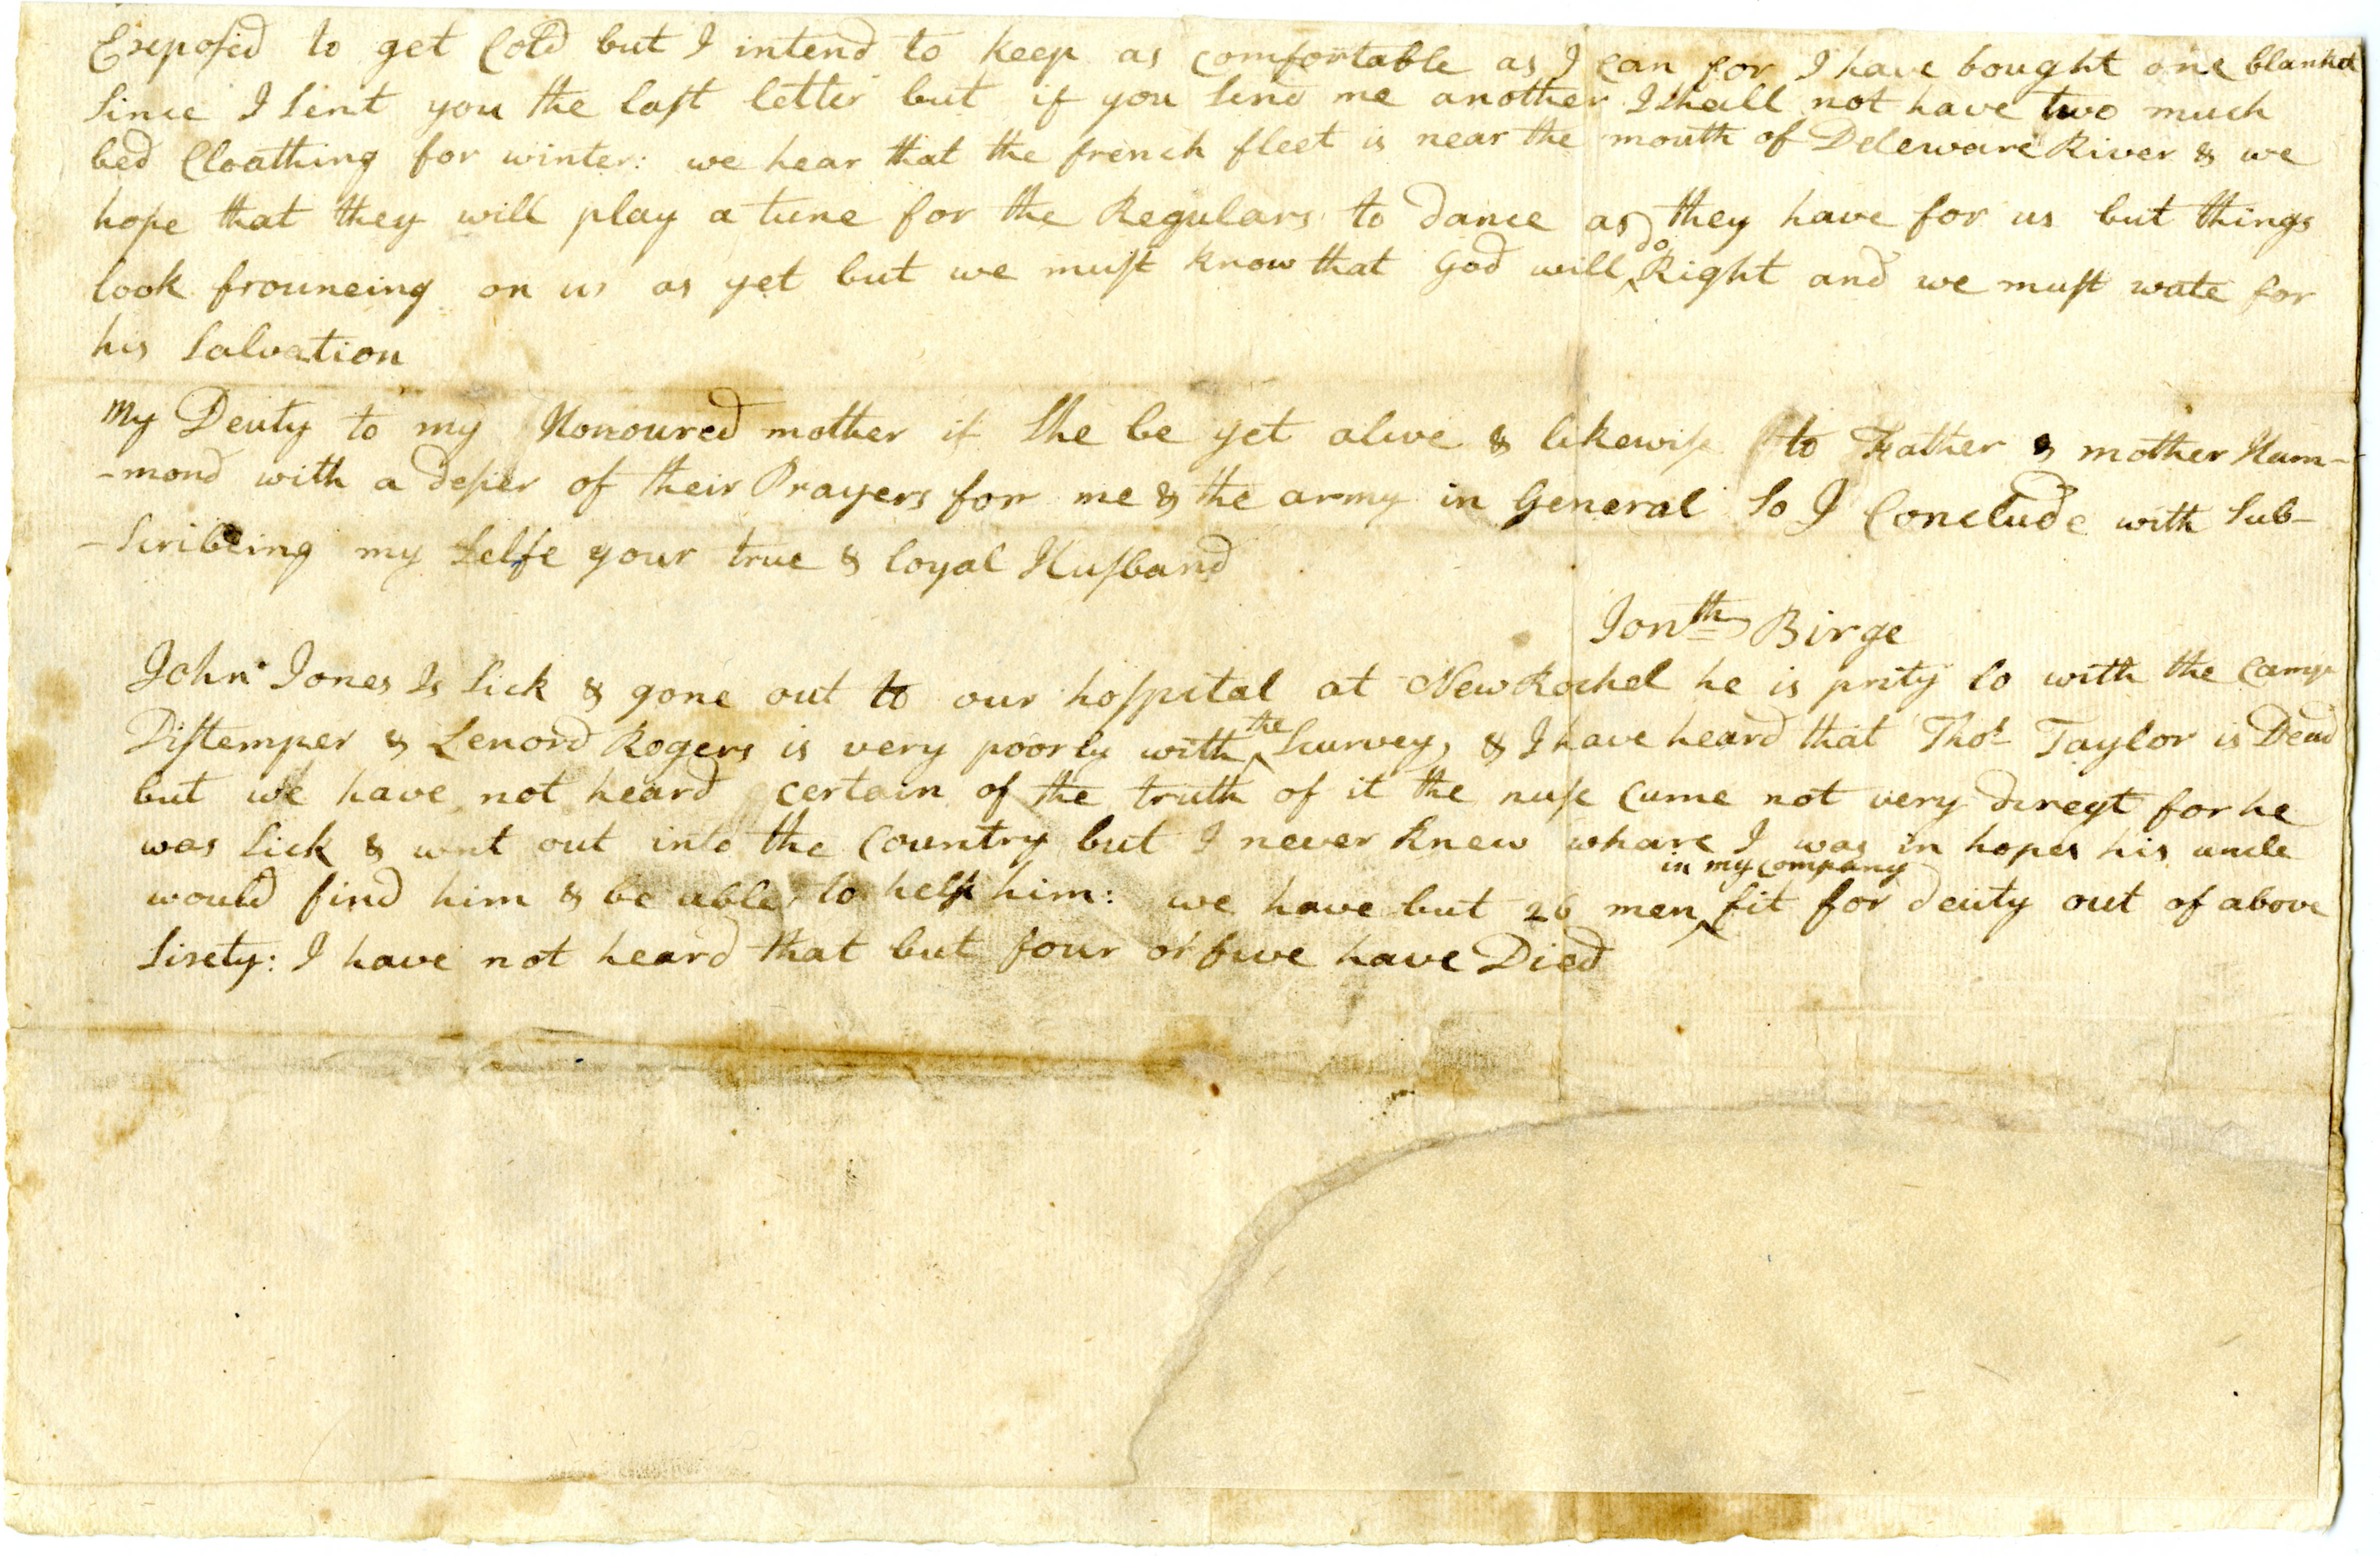 Exeposed to get Cold but I intend to keep as comfortable as I can for I have bought one blanket
Since I Sent you the last letter but if you Send me another I Shall not have two much
bed Cloathing for winter: we hear that the french fleet is near the mouth of Deleware River & we
hope that they will play a tune for the Regulars to dance as they have for us but things
look frounceing on us as yet but we must know that God will do Right and we must wate for
his Salvation
My Deuty to my Honoured mother if She be yet alive & likewise to Father & mother Ham-
-mond with a desier of their Prayers for me & the army in General So I Conclude with Sub-
-Scribeing my Selfe your true & loyal Husband
Jonth Birge
John Jones Is Sick & gone out to our hospital at New Rochel he is prity lo with the Camp
Distemper & Lenord Rogers is very poorly with the Scurvey, & I have heard that Thos Taylor is Dead
but we have not heard certain of the truth of it the nuse Came not very direqt for he
was Sick & wnt out into the Country but I never knew whare I was in hopes his uncle
would find him & be able to help him: we have but 26 men in my company fit for deuty out of above
Sixety: I have not heard that but four or five have Died